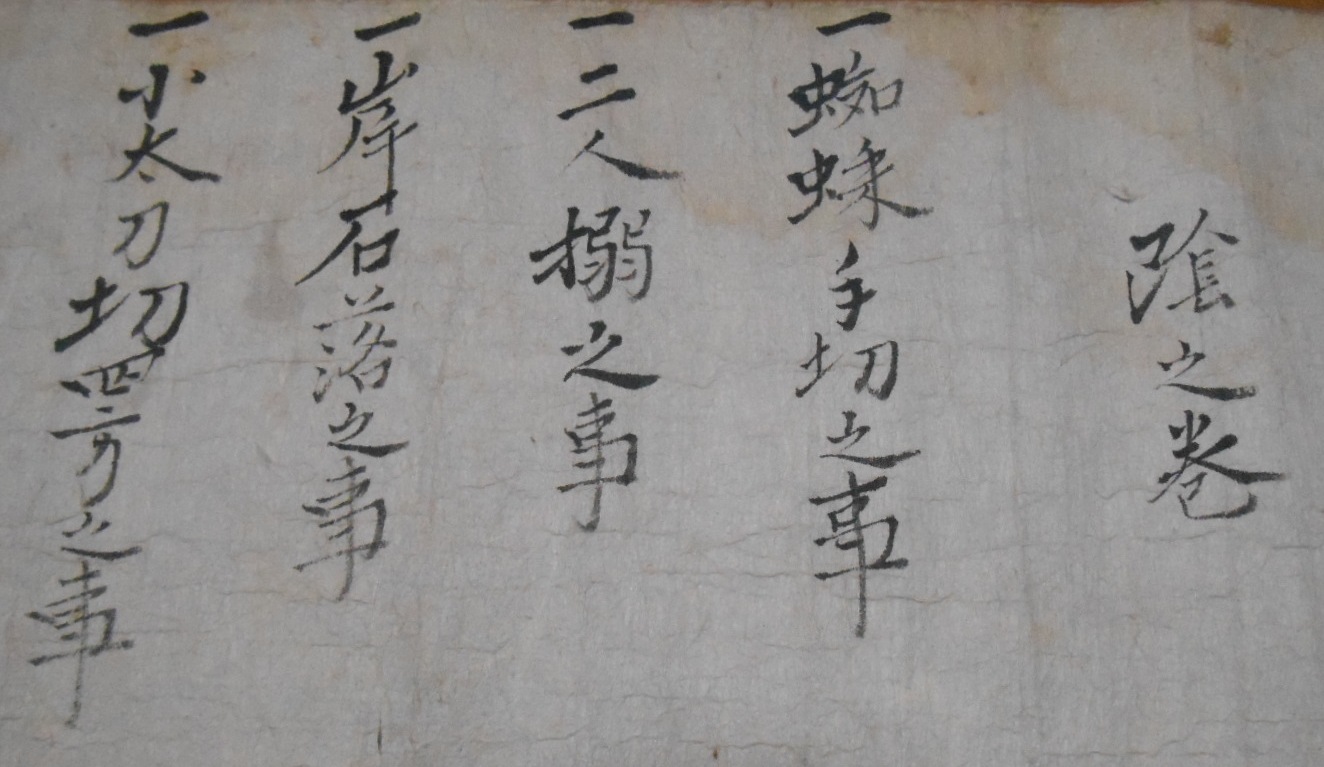 陰之巻
一蜘蛛手切之事
一二人搦之事
一岸石落之事
一小太刀切四方之事